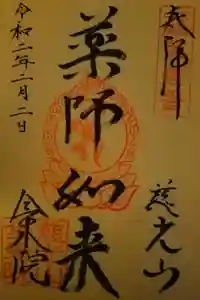 奉拝
慈光山
薬師如来
令和二年二月二日
金泉院